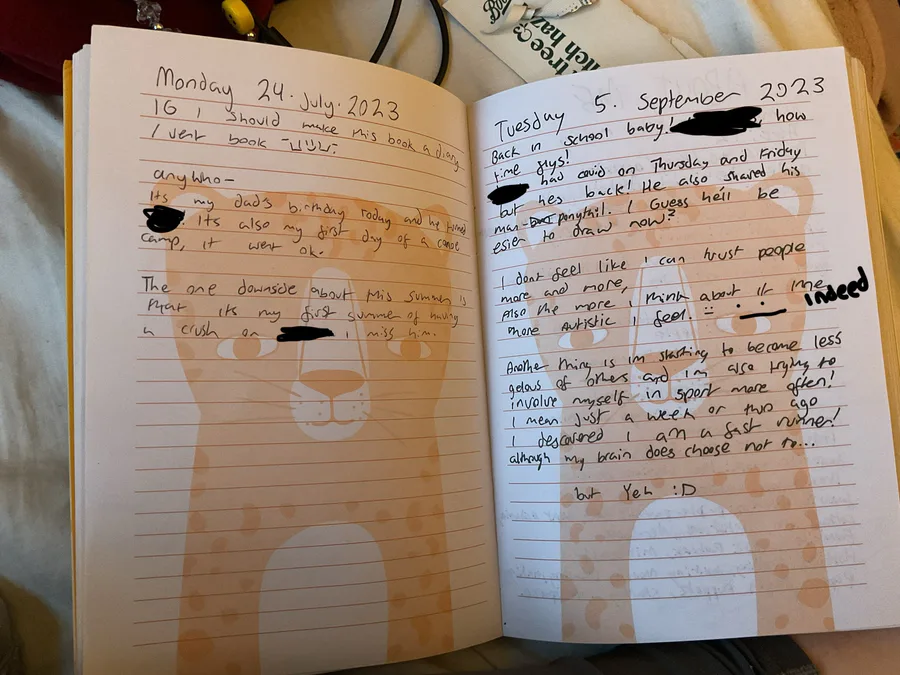 Monday 24. July. 2023
IG I should make this book a diary
/ vent book
anywho-
Its my dad's birthday today and he turned
. Its also my first day of a canoe
camp, it went ok.
The one downside about this summer is
that its my first summer of having
a crush on I miss him.
Tuesday 5. September 2023
Back in school baby! how
time flys!
had covid on Thursday and Friday
but hes back! He also shaved his
man- ponytail. I Guess he'll be
esier to draw now?
I dont feel like I can trust people
more and more,
Also the more I think about it the
more Autistic I feel. indeed
Another thing is im starting to become less
gelous of others and im also trying to
involve myself in sport more often!
I mean just a week or two ago
I descovered I am a fast runner!
although my brain does choose not to...
but Yeh :D
tree